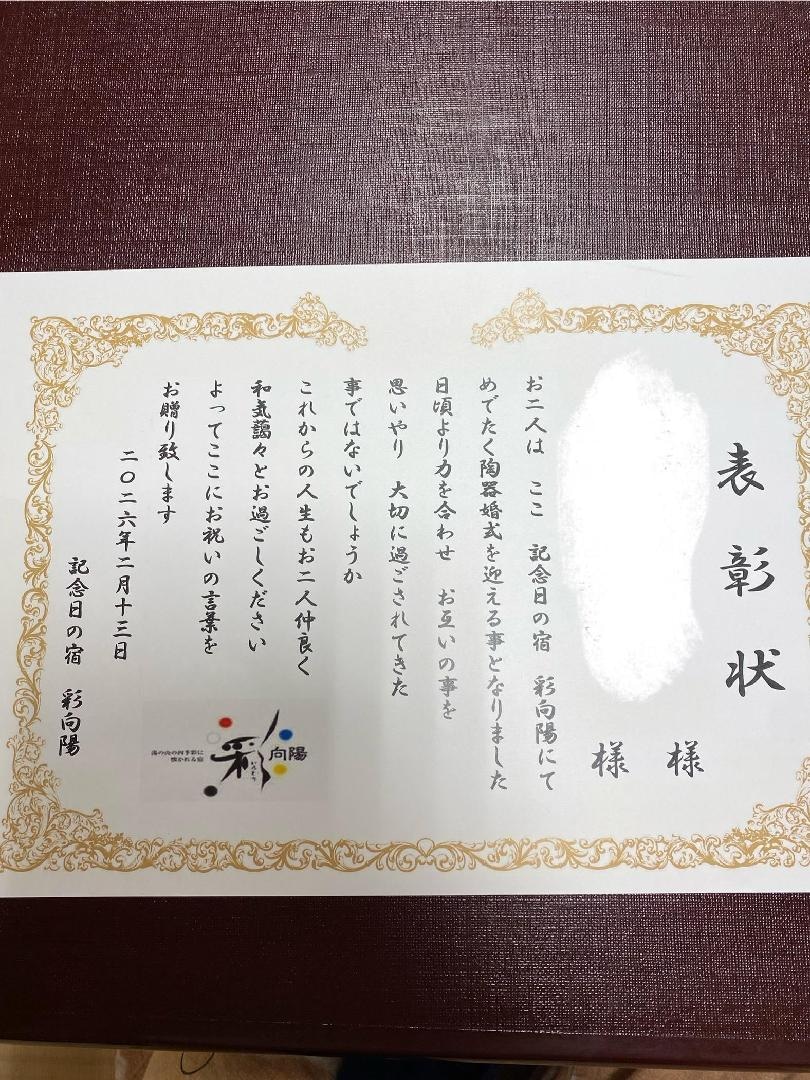 表彰状
様
様
お二人は ここ 記念日の宿 彩向陽にて
めでたく陶器婚式を迎える事となりました
日頃より力を合わせ お互いの事を
思いやり 大切に過ごされてきた
事ではないでしょうか
これからの人生もお二人仲良く
和気藹々とお過ごしください
よってここにお祝いの言葉を
お贈り致します
二〇二六年二月十三日
記念日の宿 彩向陽
湯の山の四季彩に
抱かれる宿
彩向陽
いろどり